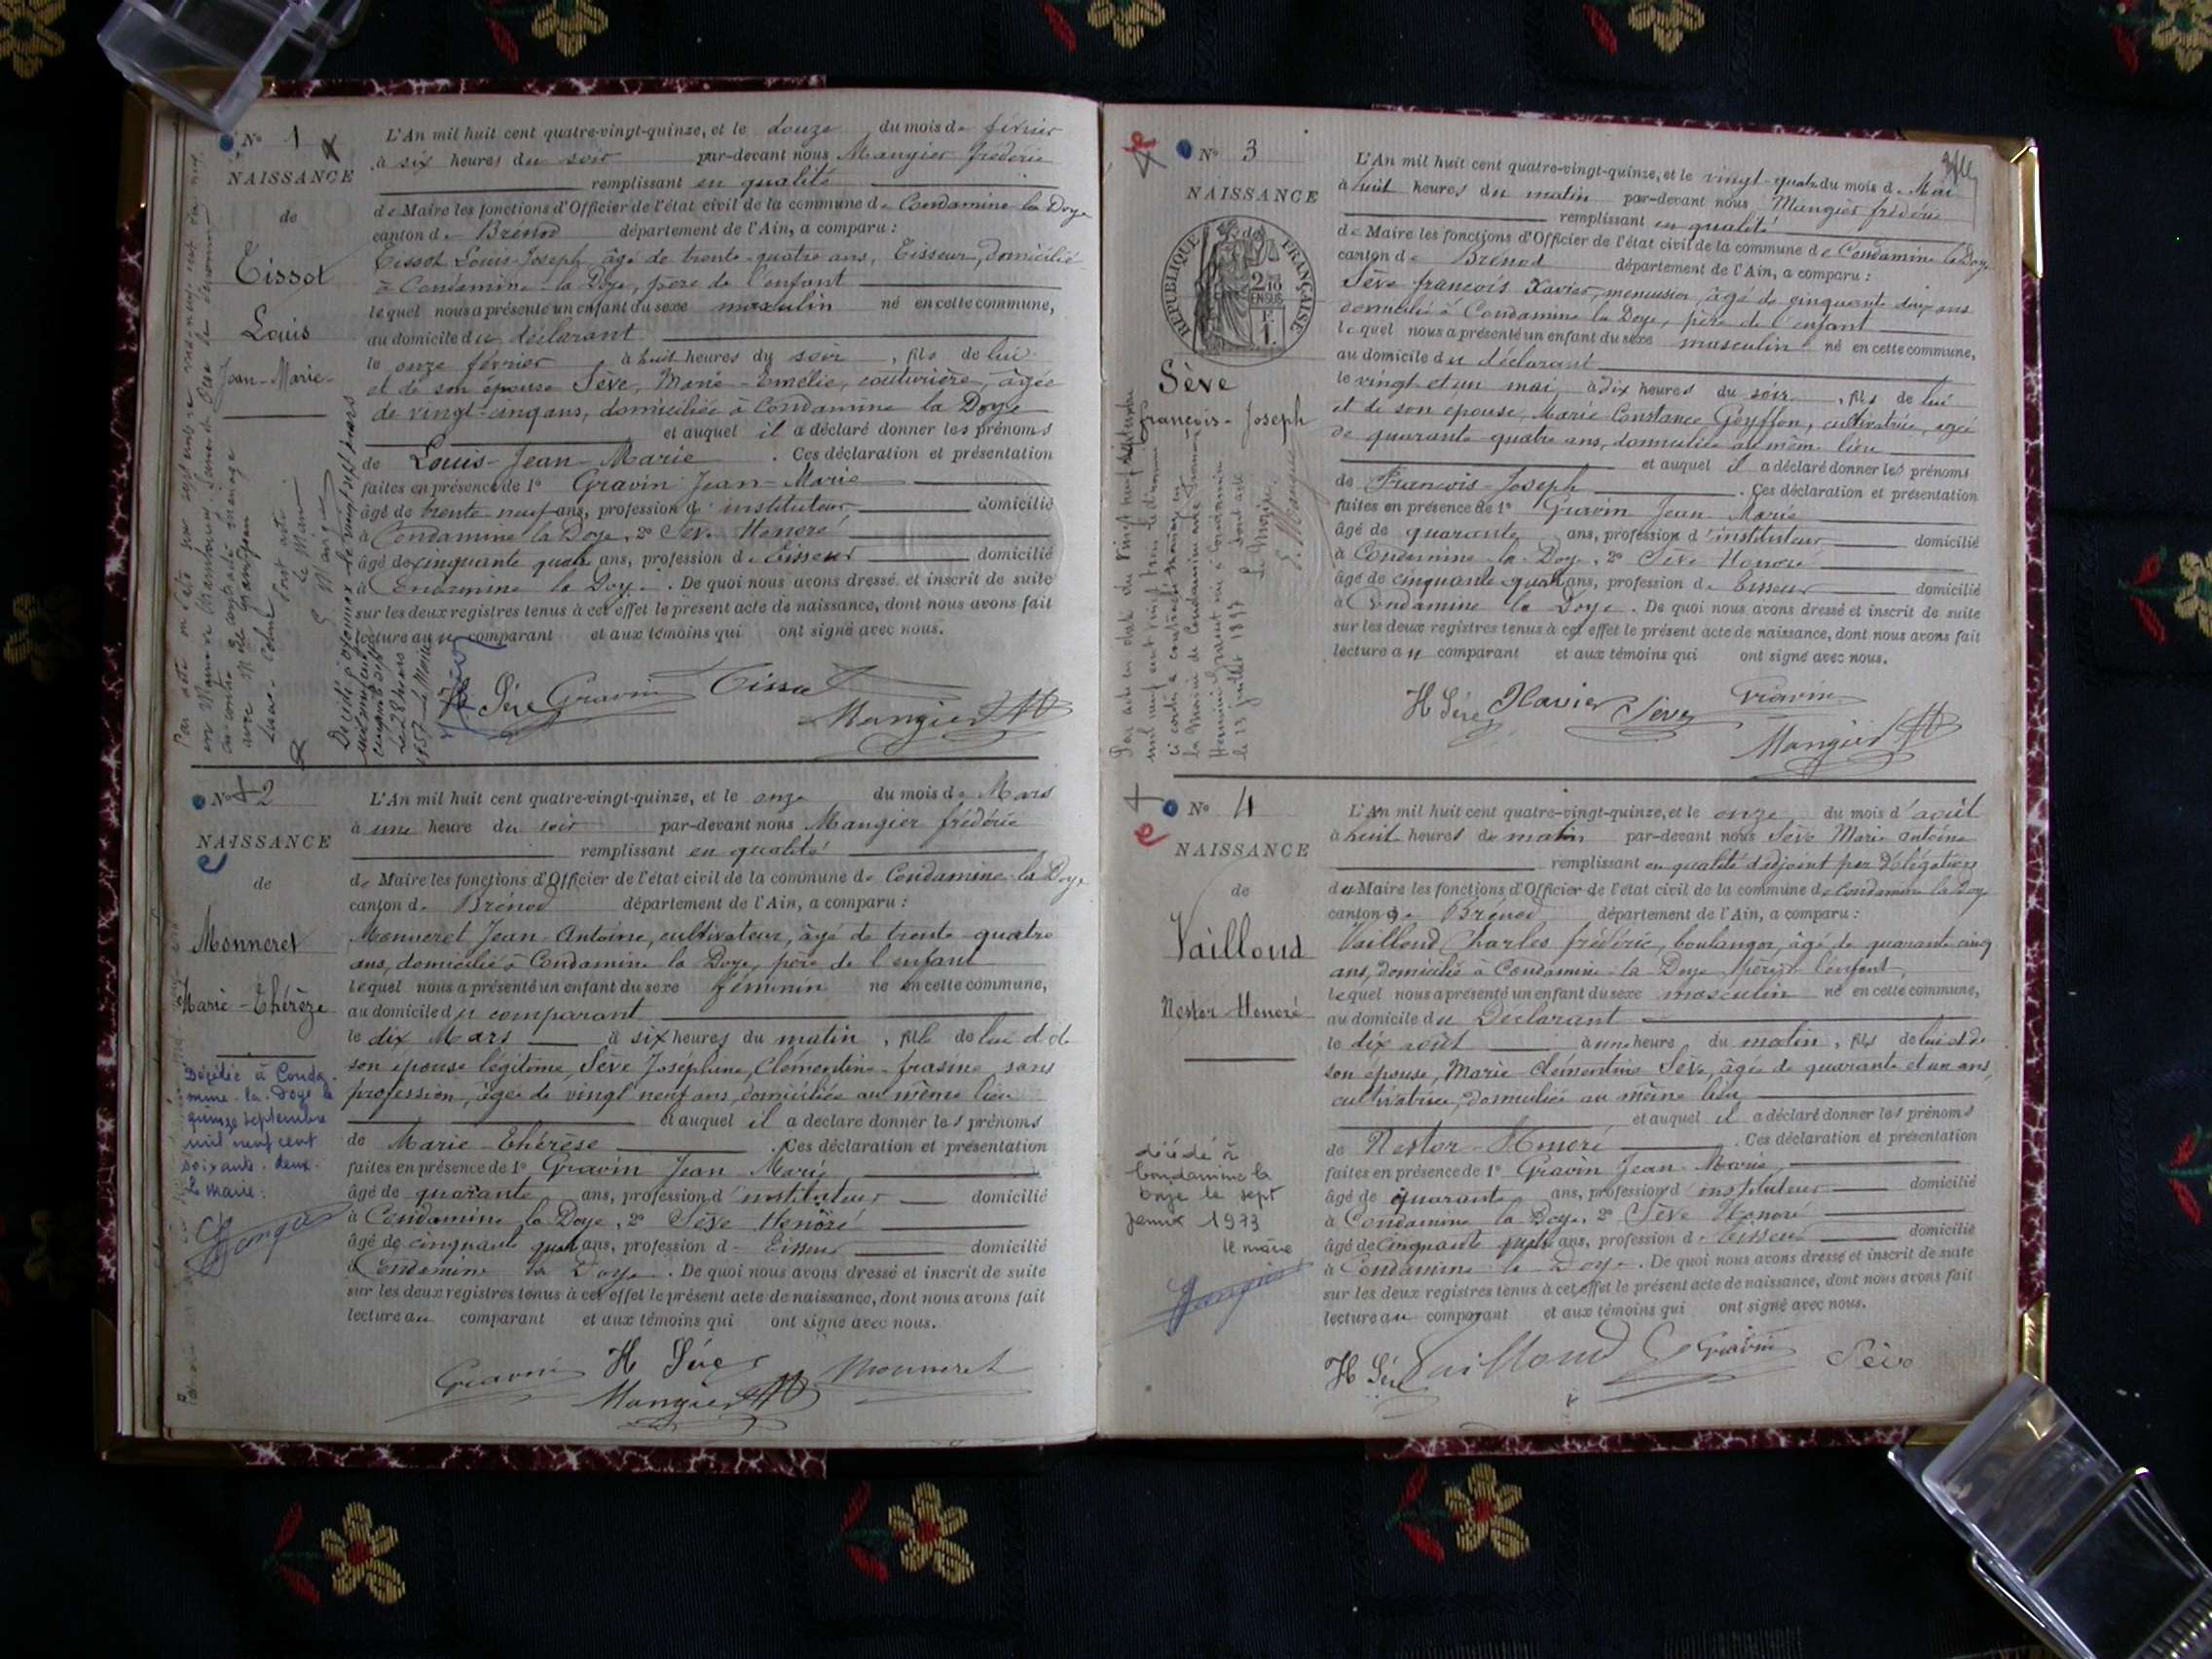 N° 1
NAISSANCE
de
Tissot
Louis
Jean-Marie
L'An mil huit cent quatre-vingt-quinze, et le douze du mois de février
à six heures du soir par-devant nous Mangier frédéric
remplissant en qualité
de Maire les fonctions d'Officier de l'état civil de la commune de Condamine la Doye
canton de Brénod département de l'Ain, a comparu :
Tissot Louis-Joseph, âgé de trente-quatre ans, Tisseur, domicilié
à Condamine la Doye, père de l'enfant
lequel nous a présenté un enfant du sexe masculin né en cette commune,
au domicile du déclarant
le onze février à huit heures du soir, fils de lui
et de son épouse Sève, Marie-Emélie, couturière, âgée
de vingt-cinq ans, domiciliée à Condamine la Doye
et auquel il a déclaré donner les prénoms
de Louis-Jean-Marie. Ces déclaration et présentation
faites en présence de 1° Gravin Jean-Marie
âgé de trente-neuf ans, profession d'instituteur domicilié
à Condamine la Doye, 2° Sève Honoré
âgé de cinquante quatre ans, profession de Tisseur domicilié
à Condamine la Doye. De quoi nous avons dressé et inscrit de suite
sur les deux registres tenus à cet effet le présent acte de naissance, dont nous avons fait
lecture au comparant et aux témoins qui ont signé avec nous.
H Sève Gravin Tissot
Mangier
N° 2
NAISSANCE
de
Monneret
Marie-Thérèze
Décédée à Conda
mine-la-Doye le
quinze septembre
mil neuf cent
soixante-deux.
Le maire:
L'An mil huit cent quatre-vingt-quinze, et le onze du mois de Mars
à une heure du soir par-devant nous Mangier frédéric
remplissant en qualité
de Maire les fonctions d'Officier de l'état civil de la commune de Condamine-la Doye
canton de Brénod département de l'Ain, a comparu :
Monneret Jean-Antoine, cultivateur, âgé de trente-quatre
ans, domicilié à Condamine la Doye, père de l'enfant
lequel nous a présenté un enfant du sexe féminin né en cette commune,
au domicile du comparant
le dix Mars à six heures du matin, fille de lui et de
son épouse légitime, Sève Joséphine, Clémentine-frasine, sans
profession, âgée de vingt neuf ans, domiciliée au même lieu
et auquel il a déclaré donner les prénoms
de Marie-Thérèse. Ces déclaration et présentation
faites en présence de 1° Gravin Jean-Marie
âgé de quarante ans, profession d'instituteur domicilié
à Condamine la Doye, 2° Sève Honoré
âgé de cinquante quatre ans, profession de Tisseur domicilié
à Condamine la Doye. De quoi nous avons dressé et inscrit de suite
sur les deux registres tenus à cet effet le présent acte de naissance, dont nous avons fait
lecture au comparant et aux témoins qui ont signé avec nous.
Gravin H Sève Monneret
Mangier
N° 3
NAISSANCE
de
RÉPUBLIQUE FRANÇAISE
2/10
EN SUS
Sève
François-Joseph
L'An mil huit cent quatre-vingt-quinze, et le vingt-quatre du mois de Mai
à huit heures du matin par-devant nous Mangier frédéric
remplissant en qualité
de Maire les fonctions d'Officier de l'état civil de la commune de Condamine la Doye
canton de Brénod département de l'Ain, a comparu :
Sève francois Xavier, menuisier, âgé de cinquante deux ans
domicilié à Condamine la Doye, père de l'enfant
lequel nous a présenté un enfant du sexe masculin né en cette commune,
au domicile du déclarant
le vingt et un mai à dix heures du soir, fils de lui
et de son épouse, Marie Constance Goyffon, cultivatrice, agée
de quarante-quatre ans, domiciliée au même lieu
et auquel il a déclaré donner les prénoms
de Francois-Joseph. Ces déclaration et présentation
faites en présence de 1° Gravin Jean-Marie
âgé de quarante ans, profession d'instituteur domicilié
à Condamine la Doye, 2° Sève Honoré
âgé de cinquante quatre ans, profession de Tisseur domicilié
à Condamine la Doye. De quoi nous avons dressé et inscrit de suite
sur les deux registres tenus à cet effet le présent acte de naissance, dont nous avons fait
lecture au comparant et aux témoins qui ont signé avec nous.
H Sève Xavier Sève Gravin
Mangier
N° 4
NAISSANCE
de
Vailloud
Nestor Honoré
décédé à
Condamine la
Doye le sept
1973
le maire
L'An mil huit cent quatre-vingt-quinze, et le onze du mois d'août
à huit heures du matin par-devant nous Sève Marie antoine
remplissant en qualité d'adjoint par délégation
du Maire les fonctions d'Officier de l'état civil de la commune de Condamine la Doye
canton de Brénod département de l'Ain, a comparu :
Vailloud Charles frédéric, boulanger, âgé de quarante cinq
ans, domicilié à Condamine-la-Doye, père de l'enfant,
lequel nous a présenté un enfant du sexe masculin né en cette commune,
au domicile du Déclarant
le dix août à une heure du matin, fils de lui et de
son épouse, Marie Clémentine Sève, âgée de quarante et un ans,
cultivatrice, domiciliée au même lieu
et auquel il a déclaré donner les prénoms
de Nestor-Honoré. Ces déclaration et présentation
faites en présence de 1° Gravin Jean-Marie
âgé de quarante ans, profession d'instituteur domicilié
à Condamine la Doye, 2° Sève Honoré
âgé de cinquante quatre ans, profession de Tisseur domicilié
à Condamine la Doye. De quoi nous avons dressé et inscrit de suite
sur les deux registres tenus à cet effet le présent acte de naissance, dont nous avons fait
lecture au comparant et aux témoins qui ont signé avec nous.
H Sève Vailloud Gravin Sève